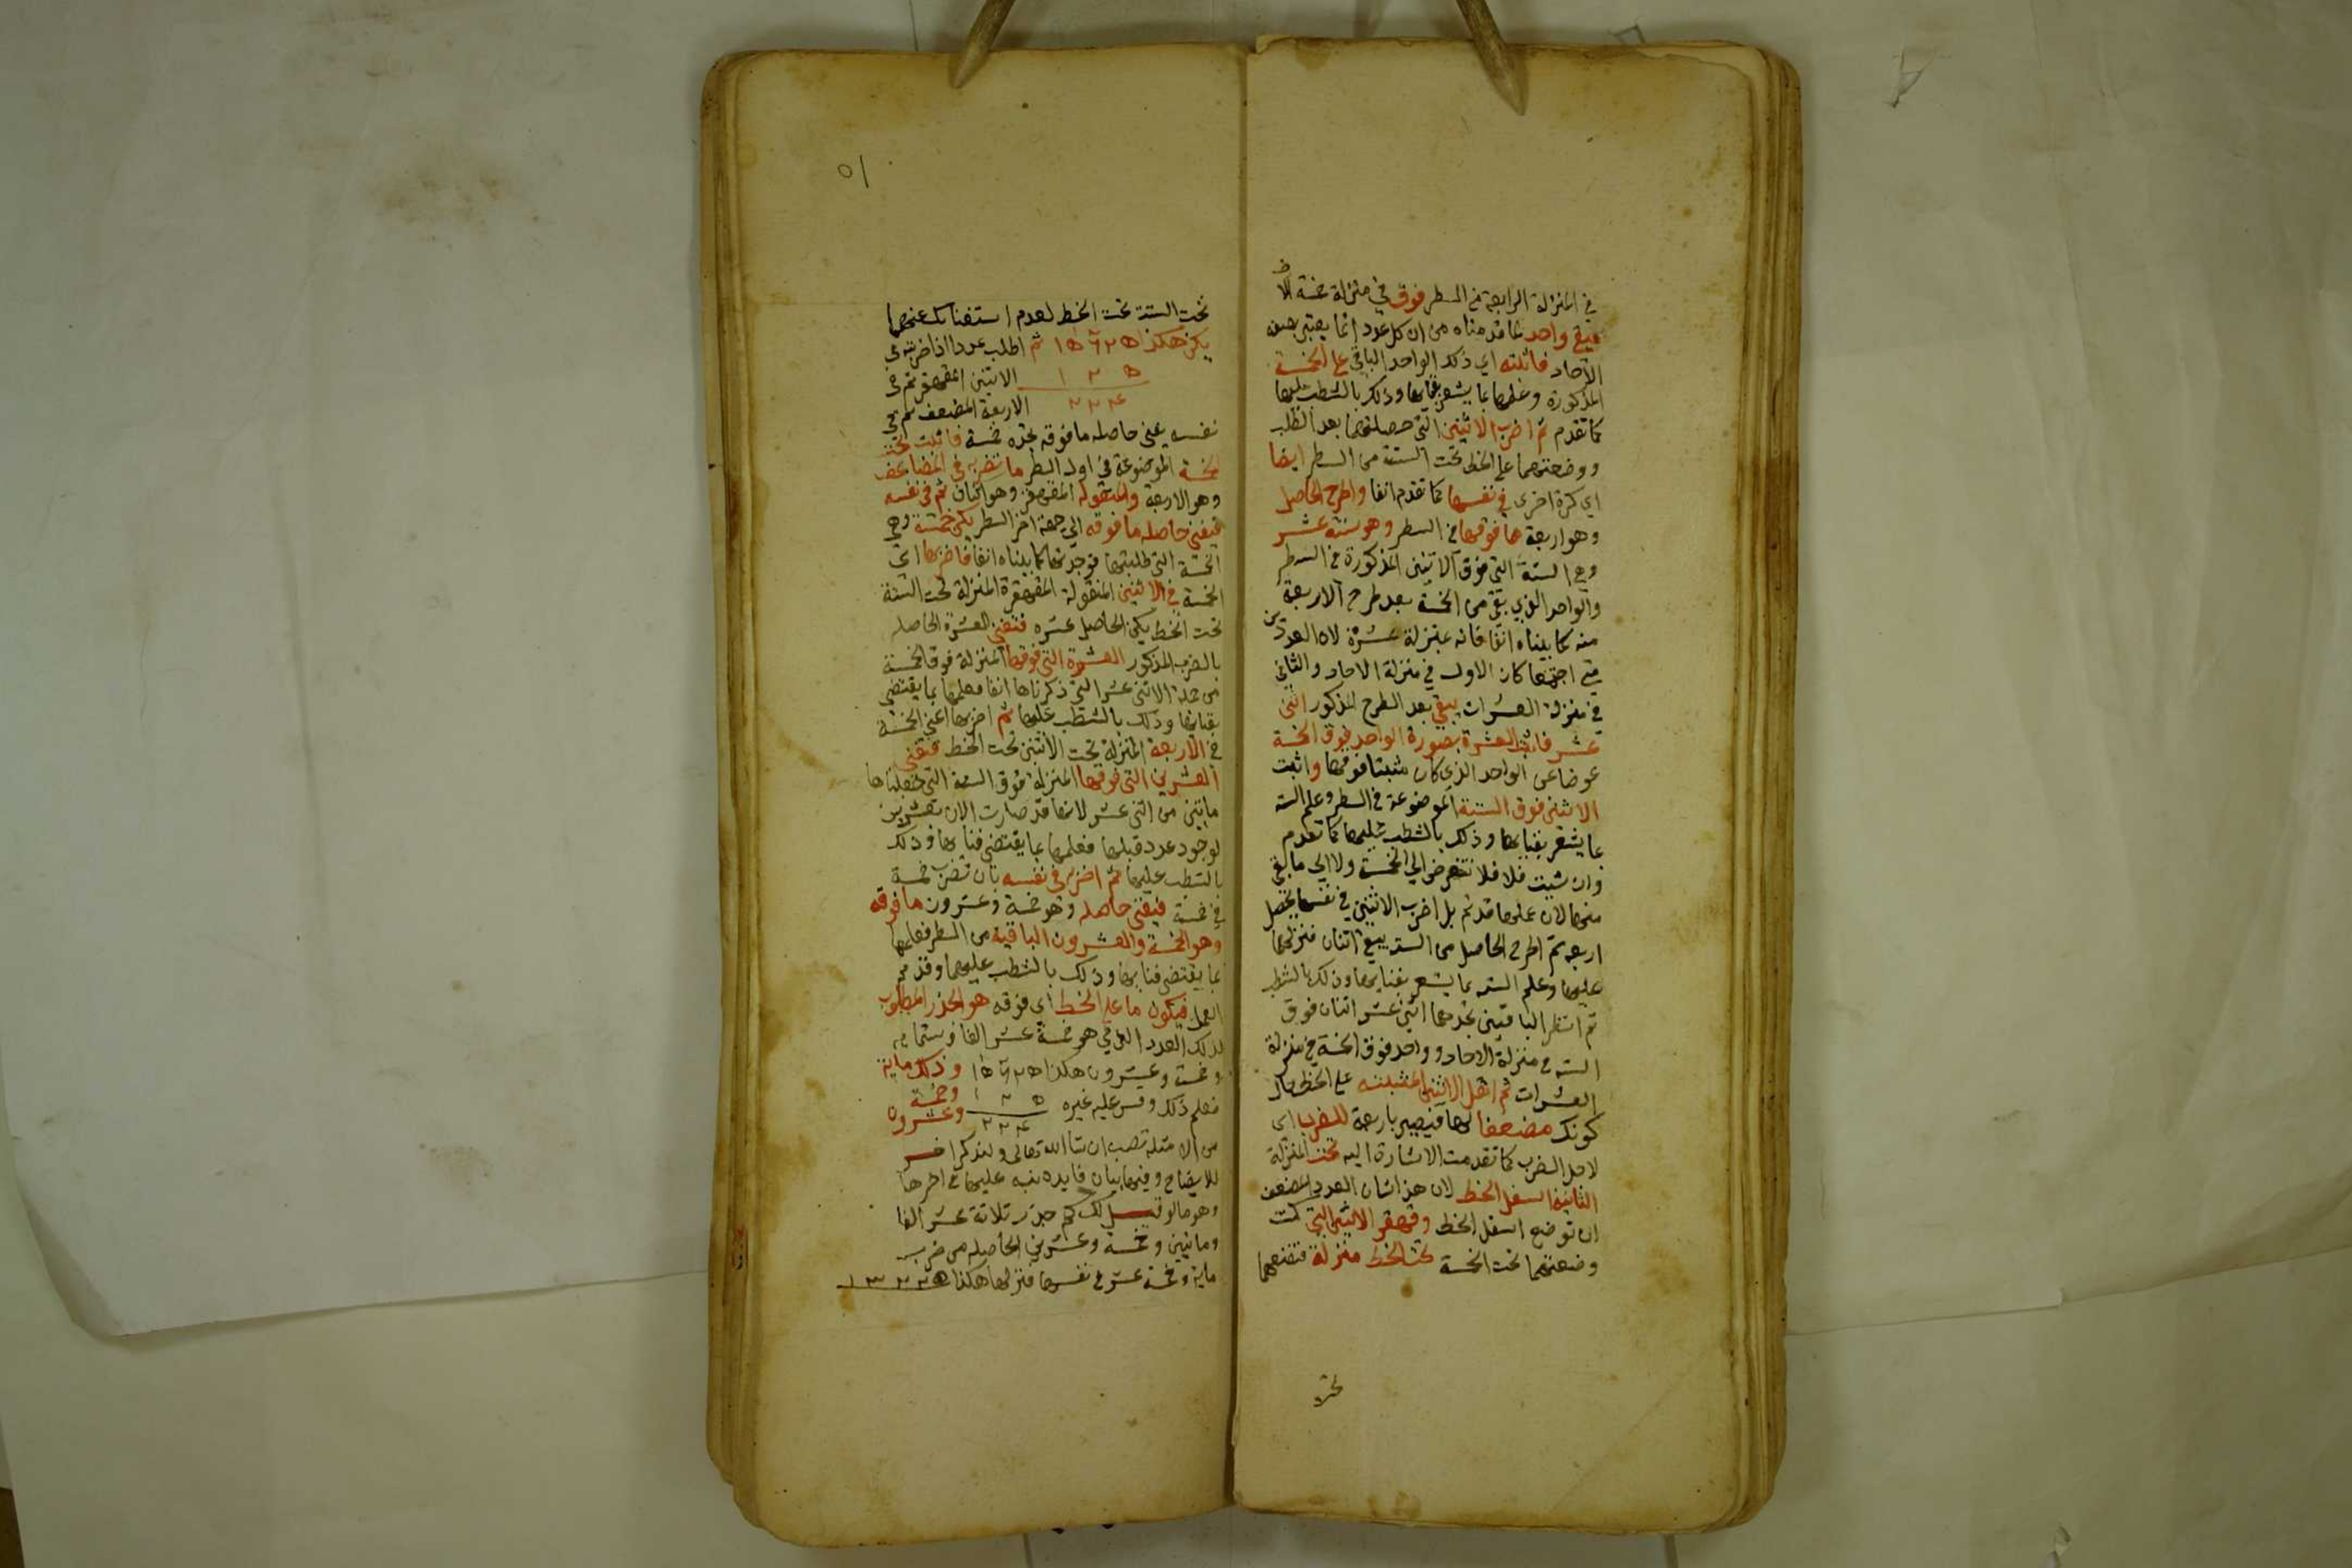 في المنزلة الرابعة من السطر فوق في منزلة خمسة
فيبقى واحد لما قدمناه من ان كل عدد انما يعتبر بصفة
الآحاد فاثبته اي ذلك الواحد الباقي على الخمسة
المذكورة وعلمها بما يشعر بفنايها وذلك بالشطب عليها
كما تقدم ثم اضرب الاثنين التي حصلتهما بعد الطلب
ووضعتهما على الخط تحت الستة من السطر ايضا
اي كرة اخرى في نفسها كما تقدم انفا واطرح الحاصل
وهو اربعة مما فوقها في السطر وهو ستة عشر
وهي الستة التي فوق الاثنين المذكورة في السطر
والواحد الذي بقي من الخمسة بعد طرح الاربعة
منه كما بيناه انفا فانه بمنزلة عشرة لان العددين
متى اجتمعا كان الاول في منزلة الاحاد والثاني
في منزلة العشرات يبقى بعد الطرح المذكور اثني
عشر فاثبت العشرة بصورة الواحد فوق الخمسة
عوضا عن الواحد الذي كان مثبتا فوقها واثبت
الاثنين فوق الستة الموضوعة في السطر وعلم الستة
بما يشعر بفنايها وذلك بالشطب عليها كما تقدم
وان شيت فلا فلا تتعرض الى الخمسة ولا الى ما بقي
منها لان علمها قد تم بل اضرب الاثنين في نفسها يحصل
اربعه ثم اطرح الحاصل من السته يبقى اثنان فنزلهما
عليها وعلم السته بما يشعر بفنايها وذلك بالشطب
ثم انظر الباقيين تجدهما اثني عشر اثنان فوق
السته في منزلة الاحاد وواحد فوق الخمسة في منزلة
العشرات ثم انقل الاثنين المثبتة على الخط حال
كونك مضعفا لها فيصير باربعة للضرب اي
لاجل الضرب كما تقدمت الاشارة اليه تحت المنزلة
الثانية اسفل الخط لان هذا شان العدد المضعف
ان توضع اسفل الخط وقهقر الاثنين التي كنت
وضعتهما تحت الخمسة تحت الخط منزلة فتضعهما
تحت
٥١
تحت الستة تحت الخط لعدم استغنايك عنهما
يكن هكذا ١٥٦٢٥ ثم اطلب عددا اذا ضربته في
١ ٢ ٥ الاثنين المقهقر ثم في
٢٢٤ الاربعة المضعف ثم في
نفسه يفنى حاصله ما فوقه تجده خمسة فاثبت تحت
الخمسة الموضوعة في اول السطر ما تضربه في المضاعف
وهو الاربعة والمنقول المقهقر وهو اثنان ثم في نفسه
فيفنى حاصله ما فوقه الى جهة اخر السطر يكن خمسة وهي
الخمسة التي طلبتها فوجدتها كما بيناه انفا فاضربها اي
الخمسة في الاثنين المنقولة المقهقرة المنزلة تحت الستة
تحت الخط يكن الحاصل عشره فتفنى العشرة الحاصله
بالضرب المذكور العشرة التي فوقها المنزلة فوق الخمسة
من جملة الاثني عشر التي ذكرناها انفا فعلمها بما يقتضي
بفنايها وذلك بالشطب عليها ثم اضربها اعني الخمسة
في الاربعة المنزلة تحت الاثنين تحت الخط فتفنى
العشرين التي فوقها المنزلة فوق الستة التي جعلناها
مابين من اثني عشر لانها قد صارت الان بعشرين
لوجود عدد قبلها فعلمها بما يقتضي فنايها وذلك
بالشطب عليها ثم اضربه في نفسه بان تضرب خمسة
في خمسة فيفنى حاصله وهو خمسة وعشرون ما فوقه
وهو الخمسة والعشرون الباقية من السطر فعلمها
بما يقتضي فنايها وذلك بالشطب عليهما وقد تم
العمل فيكون ما على الخط اي فوقه هو الجذر المطلوب
لذلك العدد الذي هو خمسة عشر الفا وستمايه
وخمسة وعشرون هكذا ١٥٦٢٥ وذلك ماية
فعلم ذلك وقس عليه غيره ١ ٢ ٥ وخمسة
٢٢٤ وعشرون
من الامثلة تصب ان شا الله تعالى ولنذكر اخر
للايضاح وفيها بيان فايده ننبه عليها في اخرها
وهو ما لو قيل لك كم جذر ثلاثة عشر الفا
ومايتين وخمسة وعشرين الحاصله من ضرب
ماية وخمسة عشر في نفسها فنزلها هكذا ١٣٢٢٥